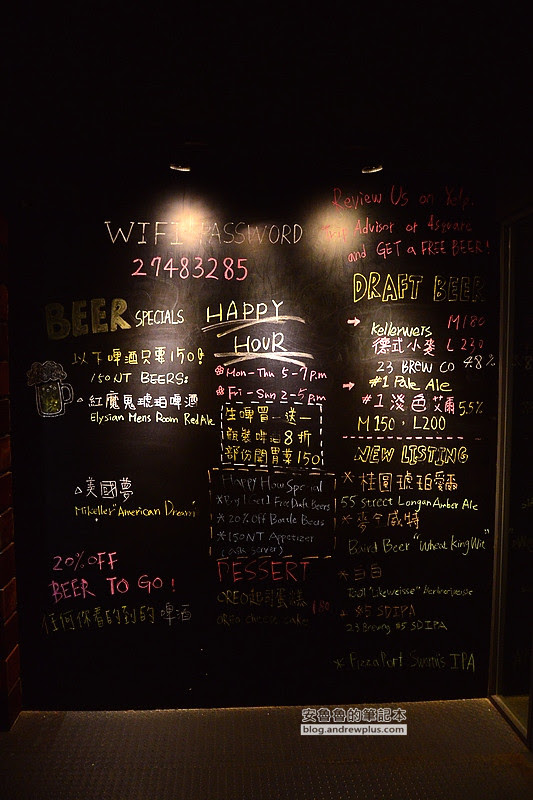 Review Us on Yelp,
Trip Advisor or 4square
and GET a FREE BEER!
WIFI PASSWORD
27483285
BEER SPECIALS
以下啤酒只要150!
150NT BEERS:
紅魔鬼琥珀啤酒
Elysian Mens Room Red Ale
美國夢
Mikeller "American Dream"
20% OFF
BEER TO GO!
任何你看的到的啤酒
HAPPY
HOUR
Mon-Thu 5-7pm
Fri-Sun 2-5pm
生啤買一送一
瓶裝啤酒8折
部份開胃菜150
Happy Hour Special
*Buy 1 Get 1 Free Draft Beers
*20% Off Bottle Beers
*150NT Appetizer
(ask server)
DESSERT
OREO起司蛋糕 180
OREO cheese cake
DRAFT BEER
Kellerweis M180
德式小麥 L230
23 BREW CO 4.8%
#1 Pale Ale
#1 淺色艾爾 5.5%
M150 · L200
NEW LISTING
*桂圓琥珀愛爾
55 Street Longan Amber Ale
*麥今威特
Baird Beer "Wheat King Wit"
*
#5 SDIPA
23 Brewing #5 SDIPA
*Pizza Port IPA
安魯魯的筆記本
blog.andrewplus.com